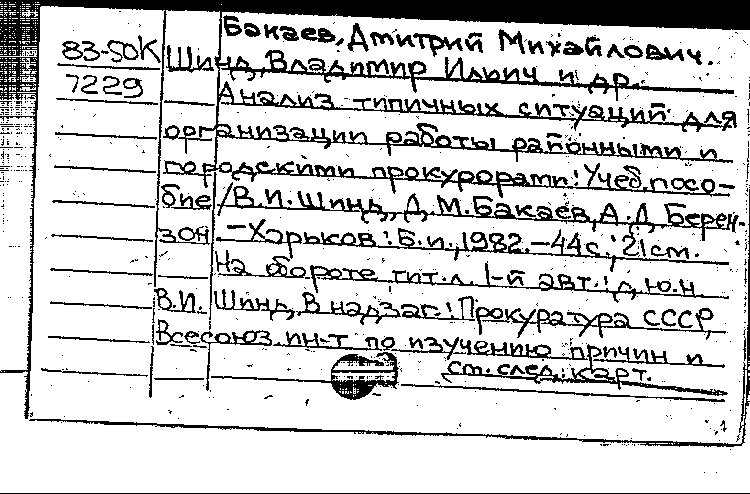 Бакаев, Дмитрий Михайлович.
83-50К Шинд, Владимир Ильич и др.
7229 Анализ типичных ситуаций для
организации работы районными и
городскими прокурорами: Учеб. посо-
бие / В.И. Шинд, Д.М. Бакаев, А.Д. Берен-
зон. — Харьков: Б.и., 1982. — 44 с.; 21 см.
На обороте тит. л. 1-й авт.: д.ю.н.
В.И. Шинд, В надзаг.: Прокуратура СССР,
Всесоюз. ин-т по изучению причин и
см. след. карт.